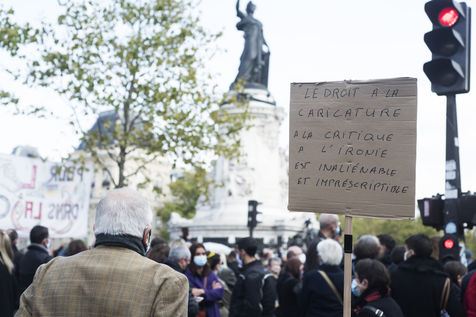 LE DROIT A LA
CARICATURE
A LA CRITIQUE
A L'IRONIE
EST INALIÉNABLE
ET IMPRÉSCRIPTIBLE
POUR L
DANS LA